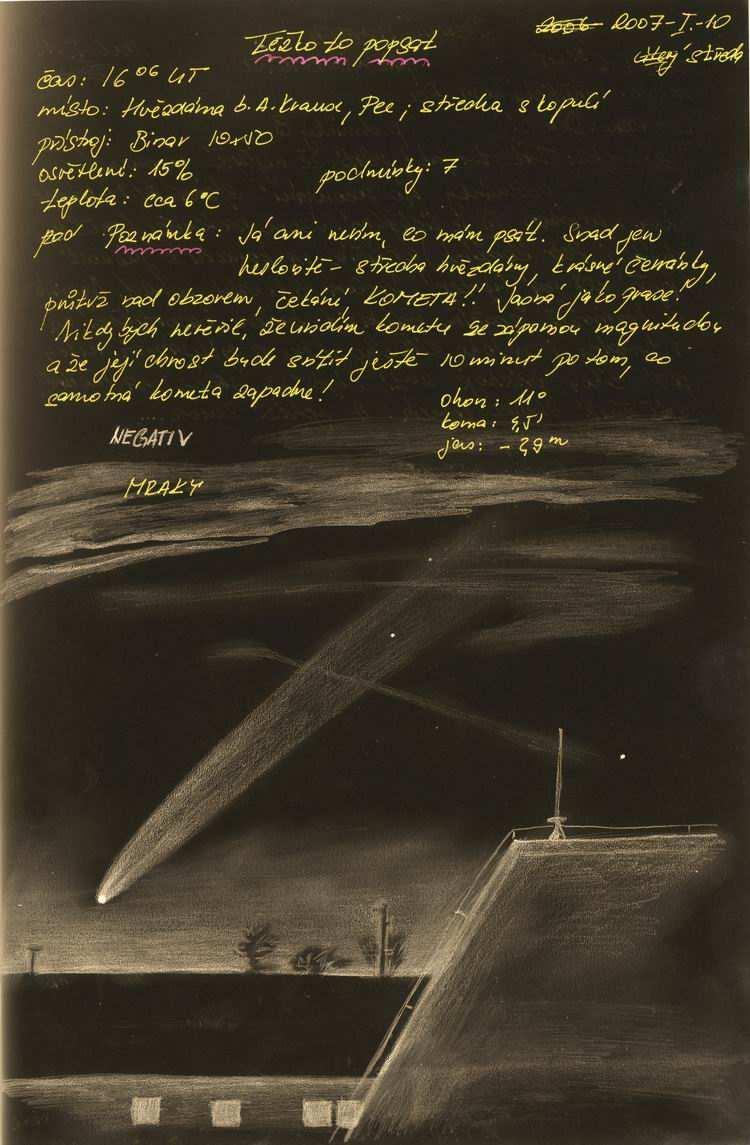 Těžko to popsat
2006 2007-I.-10
úterý středa
čas: 16 06 UT
místo: Hvězdárna b. A. Krause, Pce; střecha s kopulí
přístroj: Binar 10x50
osvětlení: 15% podmínky: 7
teplota: cca 6°C
pod Poznámka: Já ani nevím, co mám psát. Snad jen
heslovitě - střecha hvězdárny, krásné červánky,
průtrž nad obzorem, čekání, KOMETA!! Jasná jako
Nikdy bych nevěřil, že uvidím kometu se zápornou magnitudou
a že její chvost bude svítit ještě 10 minut po tom, co
samotná kometa zapadne!
Ohon: 11°
koma: 4,5'
jas: -2,9 m
NEGATIV
MRAKY